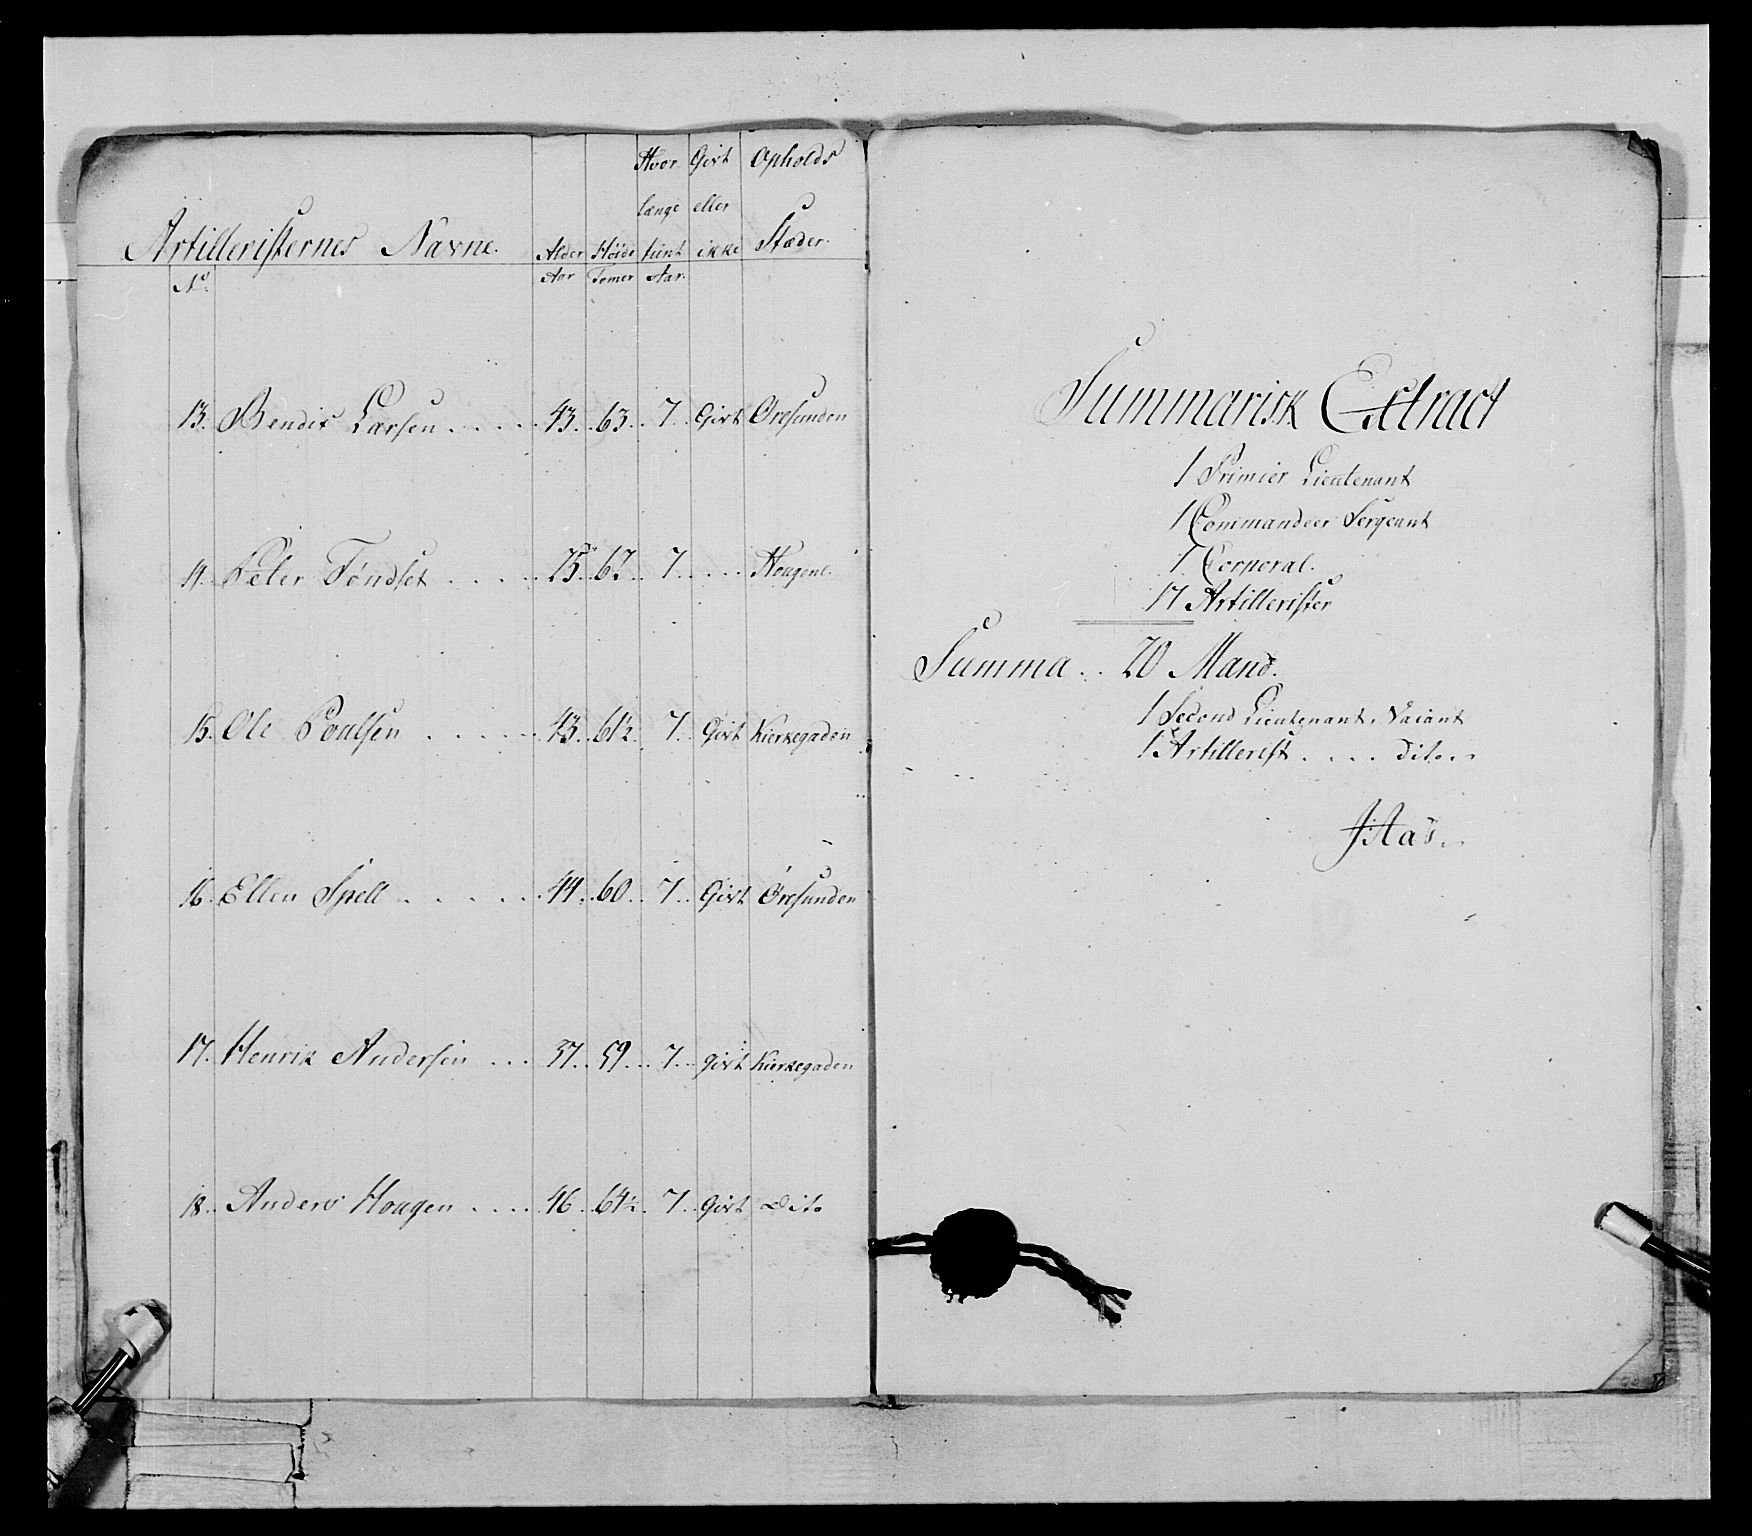 Hvor Givt Opholds
længe eller
Artilleristernes Navne. Alder Höide tient ikke Stæder.
No. Aar Tomer Aar.
13. Bendix Larsen . . . . . 43. . 63. . 7. . Givt Öresunden
14. Peter Tøndset . . . . . 25. . 67. . 7. . . . . Hougene.
15. Ole Poulsen . . . . . 43. . 61½. . 7. . Givt Kierkegaden
16. Ellen Spell . . . . . 44. . 60. . 7. . Givt Øresunden
17. Henrik Andersen . . . 37. . 59. . . 7. . Givt Kierkegaden
18. Anders Hougen . . . . 46. . 64½. . 7. . Givt Dito
Summarisk Extract
1 Primier Lieutenant
1 Commandeer Sergeant
1 Corporal.
17 Artillerister
Summa . . 20 Mand.
1 Second Lieutenant, Vacant
1 Artillerist . . . . Dito.